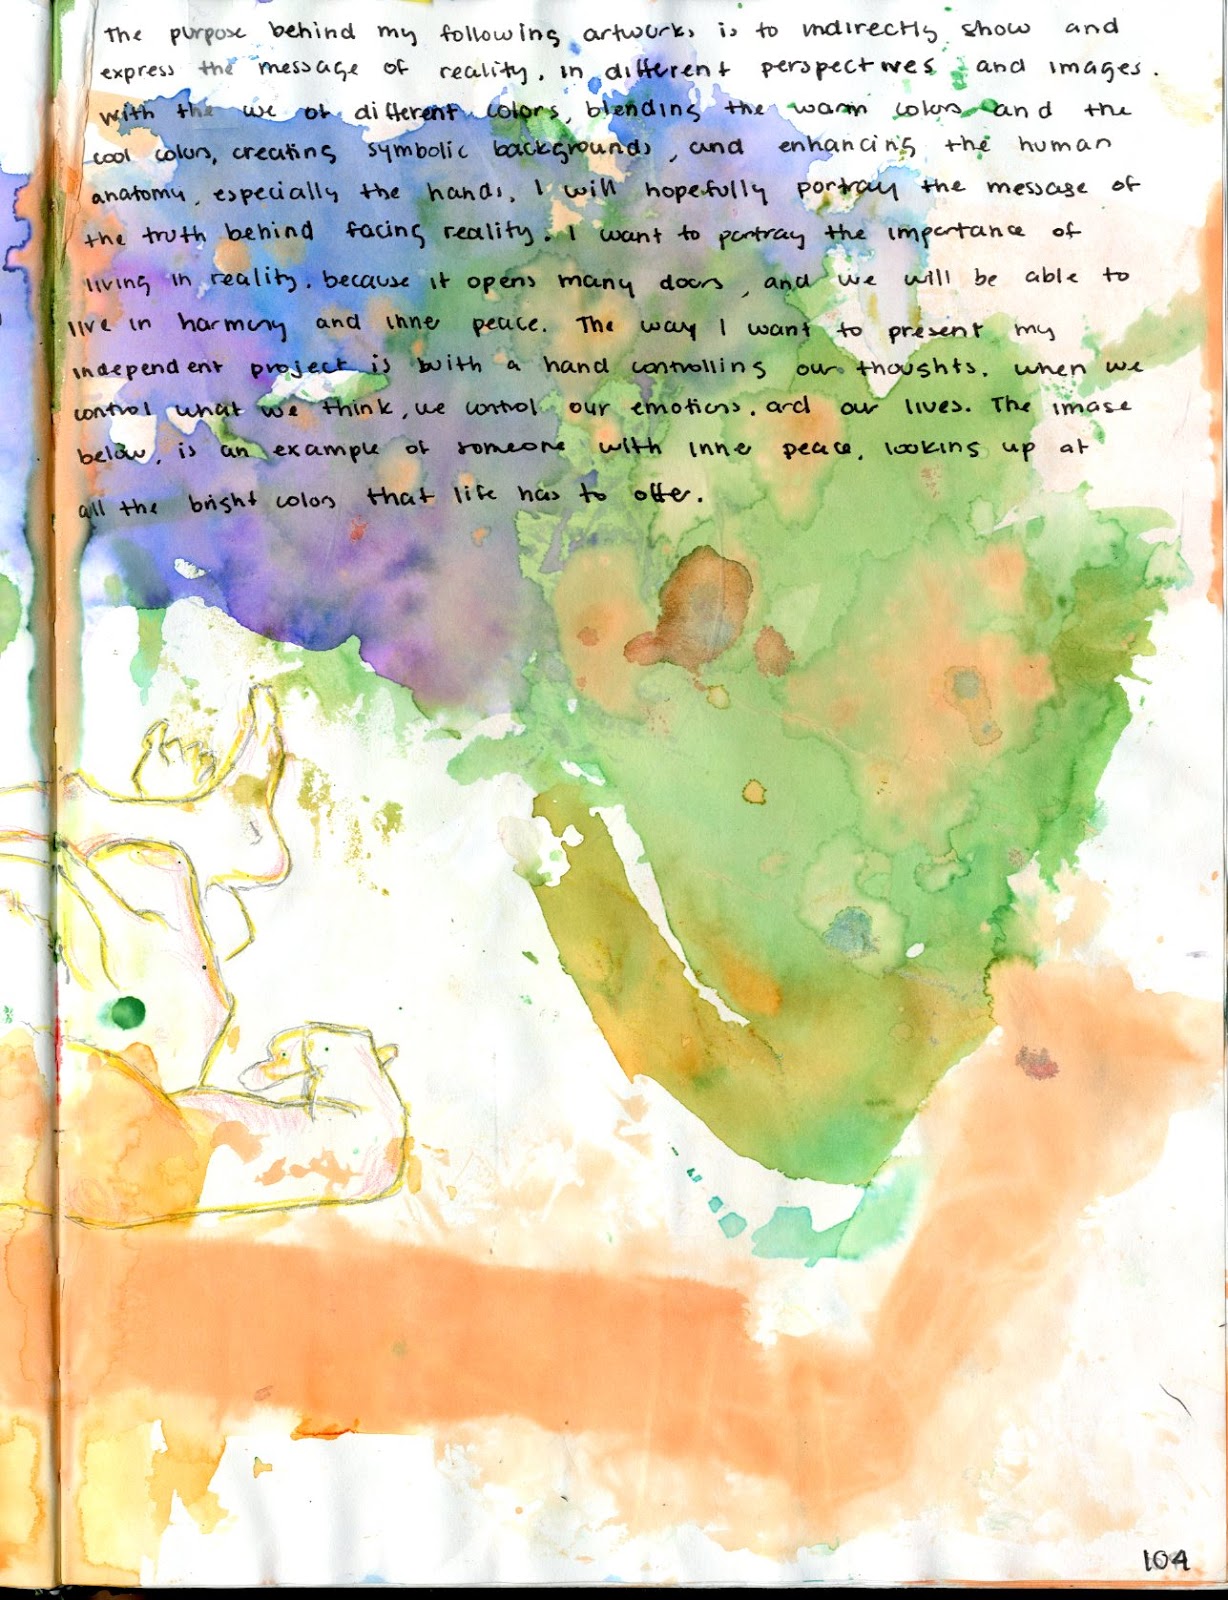 The purpose behind my following artworks is to indirectly show and
express the message of reality, in different perspectives and images.
With the use of different colors, blending the warm colors and the
cool colors, creating symbolic backgrounds, and enhancing the human
anatomy, especially the hands, I will hopefully portray the message of
the truth behind facing reality. I want to portray the importance of
living in reality, because it opens many doors, and we will be able to
live in harmony and inner peace. The way I want to present my
independent project is with a hand controlling our thoughts. When we
control what we think, we control our emotions, and our lives. The image
below, is an example of someone with inner peace, looking up at
all the bright colors that life has to offer.
104